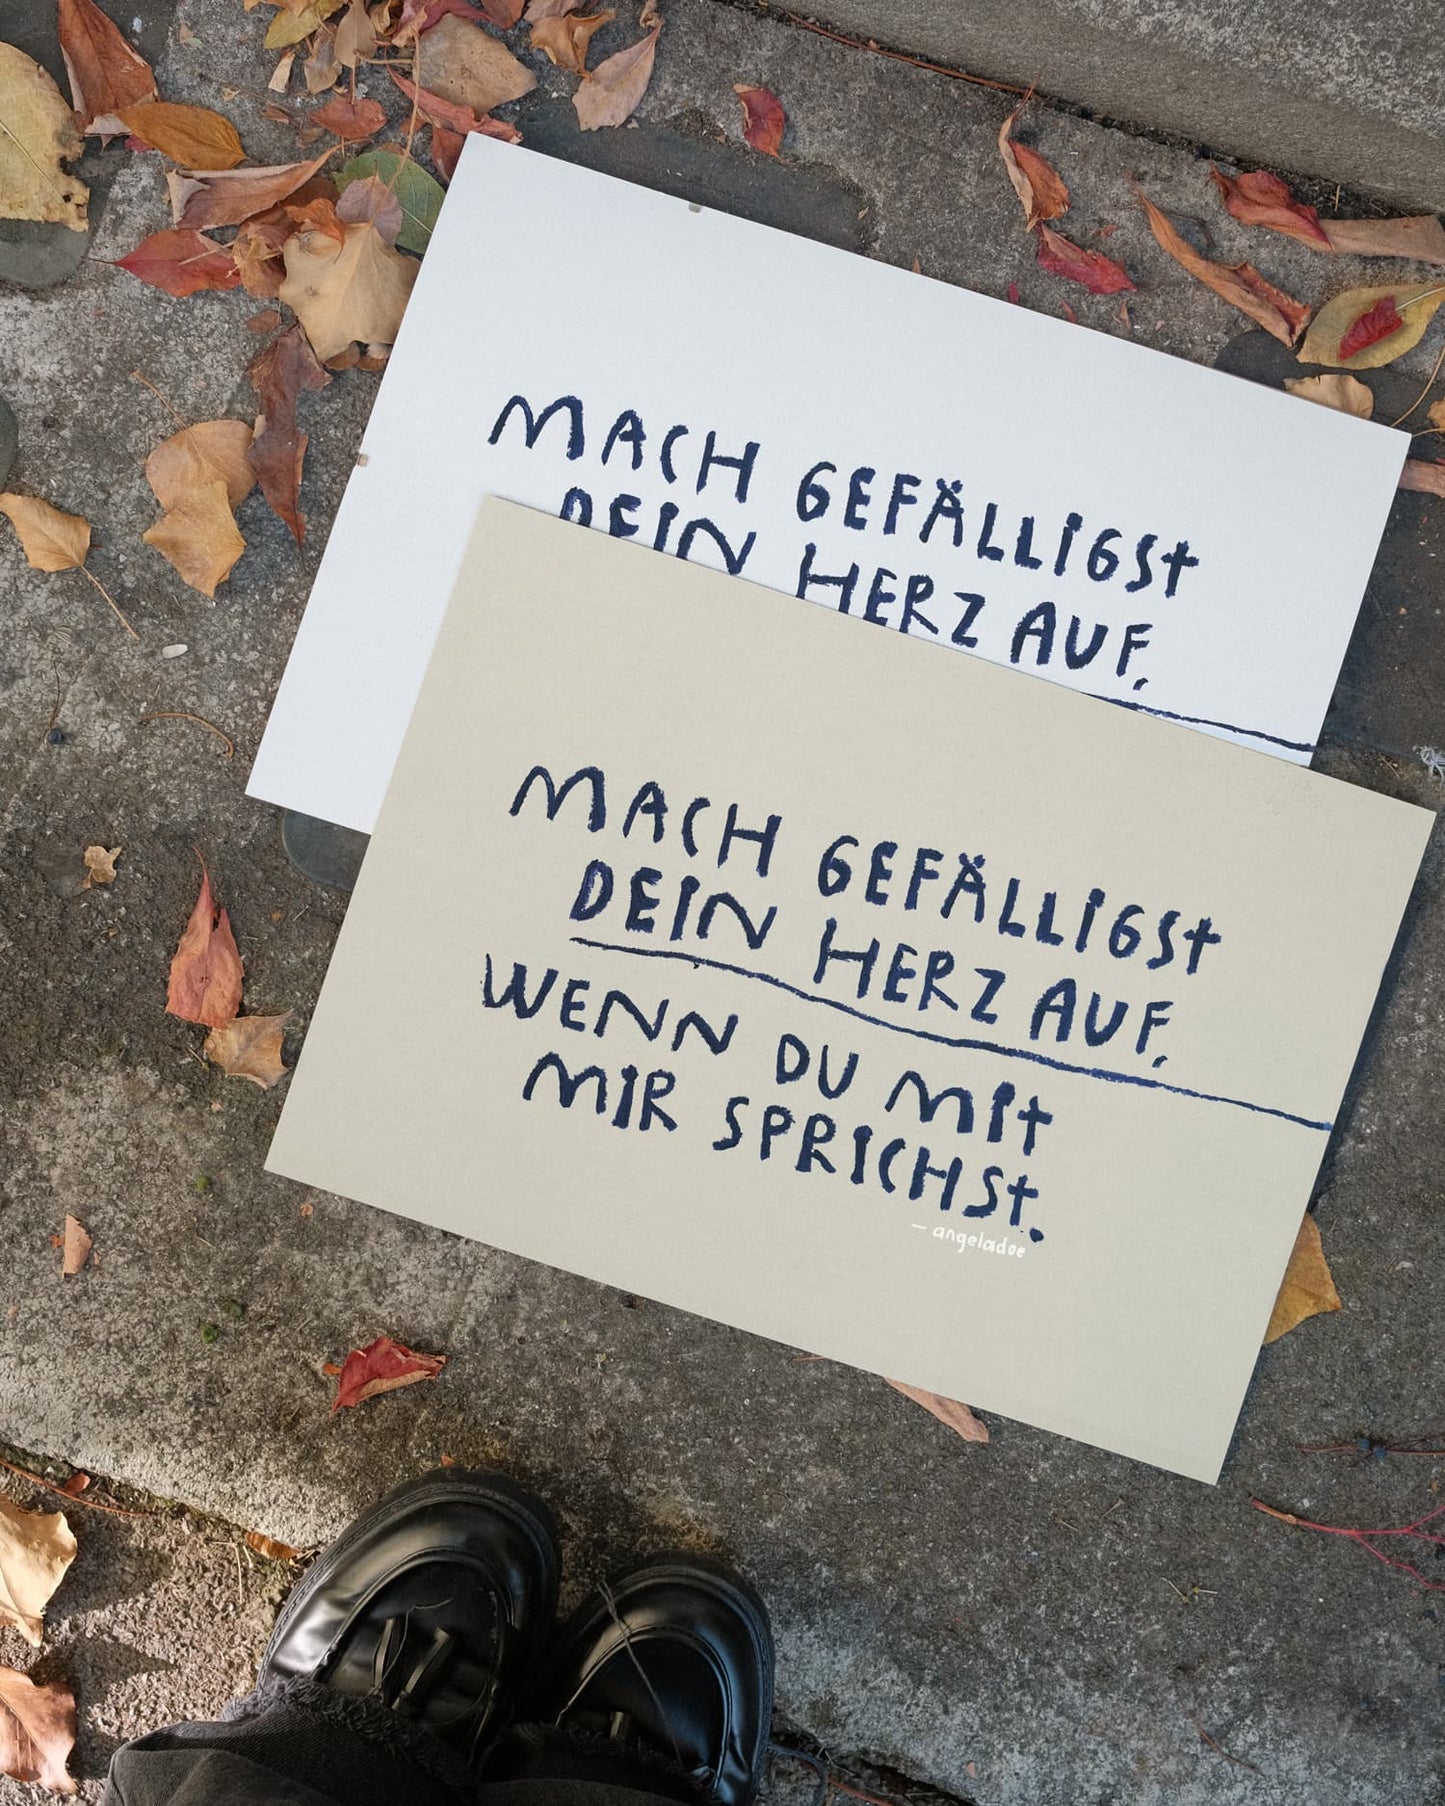 MACH GEFÄLLIGST
DEIN HERZ AUF,
MACH GEFÄLLIGST
DEIN HERZ AUF,
WENN DU MIT
MIR SPRICHST.
— angeladoe